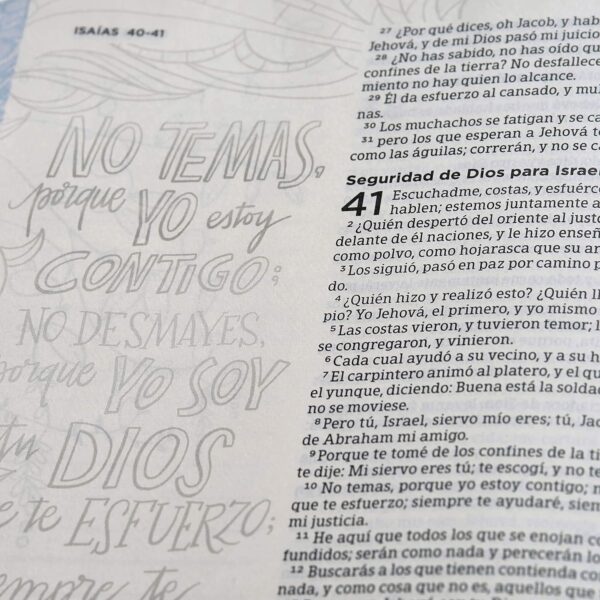 ISAÍAS 40-41
NO TEMAS,
porque YO estoy
CONTIGO;
NO DESMAYES,
porque YO SOY
tu DIOS
te ESFUERZO;
siempre te
27 ¿Por qué dices, oh Jacob, y hab
Jehová, y de mi Dios pasó mi juicio
28 ¿No has sabido, no has oído qu
confines de la tierra? No desfallece
miento no hay quien lo alcance.
29 Él da esfuerzo al cansado, y mul
nas.
30 Los muchachos se fatigan y se ca
31 pero los que esperan a Jehová t
como las águilas; correrán, y no se c
Seguridad de Dios para Israel
41 Escuchadme, costas, y esfuérc
hablen; estemos juntamente a
2 ¿Quién despertó del oriente al just
delante de él naciones, y le hizo enseñ
como polvo, como hojarasca que su ar
3 Los siguió, pasó en paz por camino p
do.
4 ¿Quién hizo y realizó esto? ¿Quién ll
pio? Yo Jehová, el primero, y yo mismo
5 Las costas vieron, y tuvieron temor; l
se congregaron, y vinieron.
6 Cada cual ayudó a su vecino, y a su h
7 El carpintero animó al platero, y el qu
el yunque, diciendo: Buena está la soldad
no se moviese.
8 Pero tú, Israel, siervo mío eres; tú, Jac
de Abraham mi amigo.
9 Porque te tomé de los confines de la ti
te dije: Mi siervo eres tú; te escogí, y no te
10 No temas, porque yo estoy contigo; n
que te esfuerzo; siempre te ayudaré, siem
mi justicia.
11 He aquí que todos los que se enojan co
fundidos; serán como nada y perecerán lo
12 Buscarás a los que tienen contienda con
nada, y como cosa que no es, aquellos que